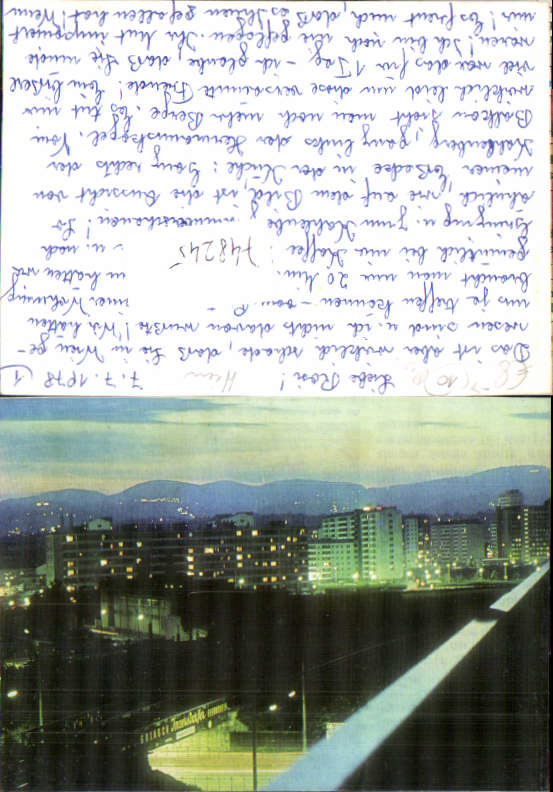 7.7.1978 (1
Liebe Rosi!
Das ist aber wirklich schade, daß Sie in Wien ge-
wesen sind u. ich nichts davon wußte! Wir hätten
uns ja treffen können - vom
iner Wohnung
braucht man nur 20 Min.
in hätten wir
gemütlich bei mir Kaffee
u. noch
748245
Grinzing u. zum Kahlenbg. hinüberschauen! So
ähnlich, wie auf dem Bild, ist die Aussicht von
meiner Essecke in der Küche: Ganz rechts der
Kahlenberg, ganz links der Hermannskogel. Vom
Balkon sieht man noch mehr Berge. Es tut mir
wirklich leid um diese versäumte Freude! Ein bißchen
viel war das für 1 Tag - ich glaube, daß Sie müde
waren! Ich bin noch nie geflogen. Ihr Mut imponiert
mir! Es freut mich, daß es Ihnen gefallen hat! Wenn